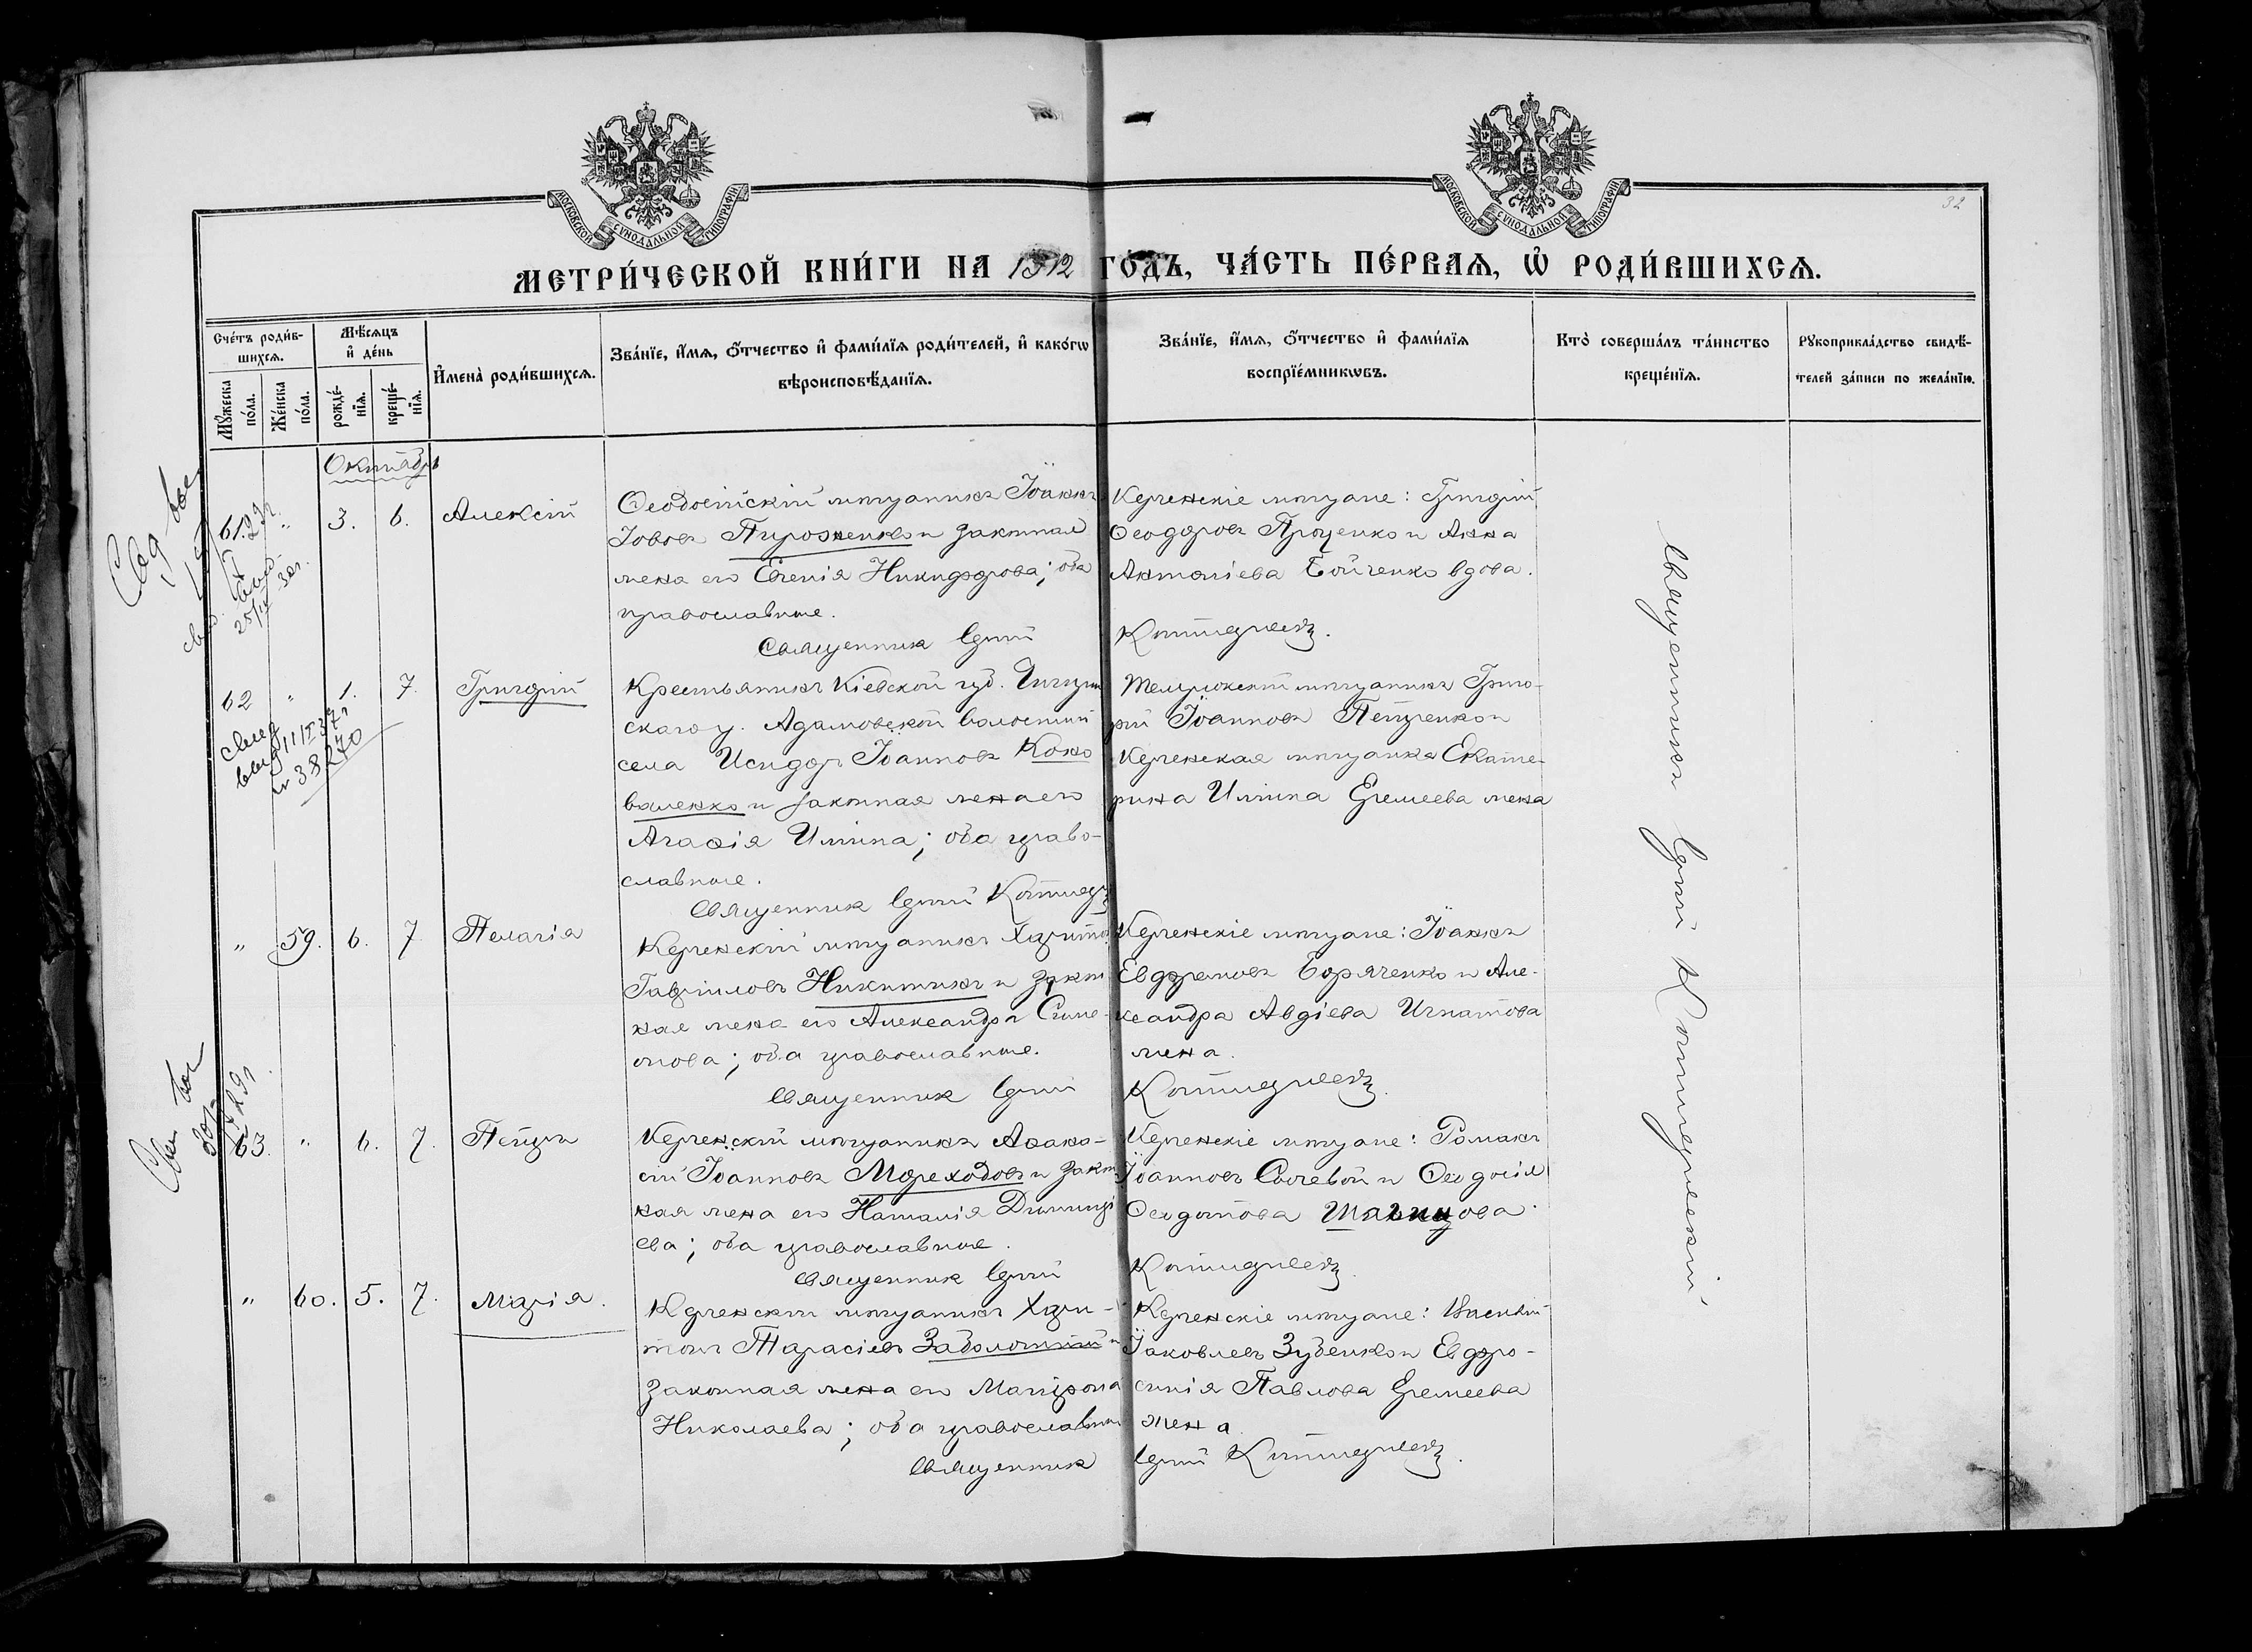 32
МОСКОВСКОЙ СѴНОДАЛЬНОЙ ТИПОГРАФІИ
МОСКОВСКОЙ СѴНОДАЛЬНОЙ ТИПОГРАФІИ
МЕТРИ́ЧЕСКОЙ КНИ́ГИ НА 1912 ГО́ДЪ, ЧА́СТЬ ПЕ́РВАѦ, Ѡ҆ РОДИ́ВШИХСѦ.
Сче́тъ роди́в-
шихсѧ.
Мꙋ́жеска по́ла.
Же́нска по́ла.
Мѣ́сѧцъ и҆ де́нь
рожде́-
нїѧ.
креще́-
нїѧ.
И҆мена̀ роди́вшихсѧ.
Зва́нїе, и҆́мѧ, ѻ҆́тчество и҆ фами́лїѧ роди́телей, и҆ како́гѡ
вѣроисповѣ́данїѧ.
Зва́нїе, и҆́мѧ, ѻ҆́тчество и҆ фами́лїѧ
воспрїе́мникѡвъ.
Кто̀ соверша́лъ та́инство
креще́нїѧ.
Рꙋкоприкла́дство свидѣ́-
телей за́писи по жела́нїю.
Октябрь
61. " 3. 6. Алексій
Ѳеодосійскій мѣщанинъ Іоаннъ
Іововъ Пироженко и законная
жена его Евгенія Никифорова; оба
православные.
Священникъ Сергій
Керченскіе мѣщане: Григорій
Ѳеодоровъ Проценко и Анна
Анатоліева Бойченко вдова.
62 " 1. 7. Григорій
Крестьянинъ Кіевской губ. Чигирин
скаго у. Адамовской волости
села Исидоръ Іоанновъ Коно
валенко и законная жена его
Агаѳія Ильина; оба право-
славные.
Священникъ Сергій
Темрюкскій мѣщанинъ Григо-
рій Іоанновъ Петренко и
Керченская мѣщанка Екате-
рина Ильина Еремеева жена
" 59. 6. 7 Пелагія
Керченскій мѣщанинъ Харитонъ
Гавріиловъ Никитинъ и закон
ная жена его Александра Симе-
онова; оба православные.
Священникъ Сергій
Керченскіе мѣщане: Іоаннъ
Евфремовъ Боряченко и Але-
ксандра Авдіева Игнатова
жена.
63. " 6. 7. Петръ
Керченскій мѣщанинъ Аѳана-
сій Іоанновъ Мореходовъ и закон
ная жена его Наталія Димитрі
ева; оба православные.
Священникъ Сергій
Керченскіе мѣщане: Романъ
Іоанновъ Сычевой и Ѳеодосія
Ѳеодотова
" 60. 5. 7. Марія.
Керченскій мѣщанинъ Хари-
тонъ Тарасіевъ Заболотній и
законная жена его Матрона
Николаева; оба православные
Священникъ
Керченскіе мѣщане: Василій
Іаковлевъ Зубенко и Евфро-
синія Павлова Еремеева
жена
Сергій
Священникъ Сергій